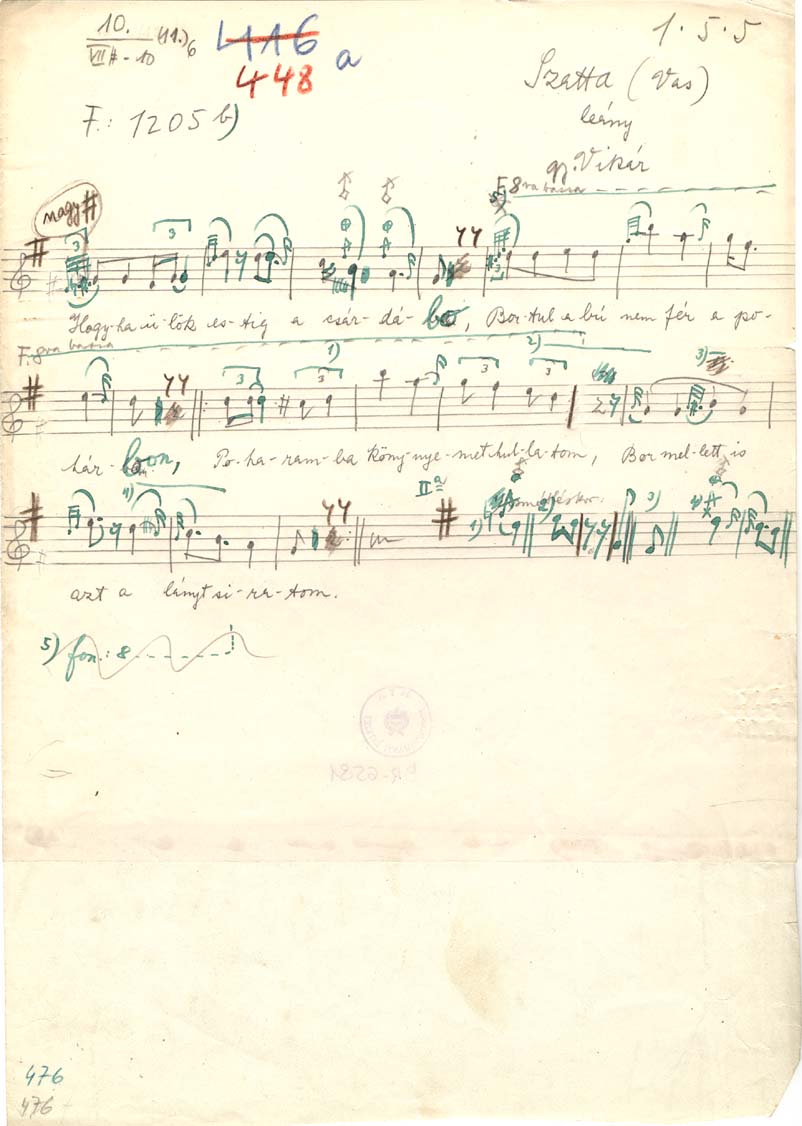 10. (11.) 6
VII # - 10
416
448 a
1. 5. 5
F.: 1205 b)
Szatta (Vas)
leány
gy. Vikár
nagy #
F. 8va bassa
5)
3 3
Hogy-ha ü-lök es-tig a csár-dá-bo, Bor-tul a bú nem fér a po-
F. 8va bassa
1) 2) 3)
3 3 3 3
hár-boon, Po-ha-ram-ba köny-nye-met hul-la-tom, Bor mel-lett is
4) IIa
1) 2) 3) 4)
azt a lányt si-ra-tom.
5) fon.: 8
476
476